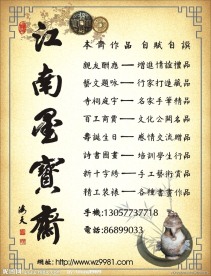 江南墨寶齋
本齋作品 自賦自撰
親友酬應━━增進情誼禮品
藝文題咏━━行家打造藏品
寺祠庭字━━名家手筆精品
百工商賈━━文化公關名品
壽誕生日━━感情交流贈品
詩書圖畫━━培訓學生行品
新十字綉━━手工藝術賞品
精工裝裱━━各種書畫作品
手機:13057737718
電話:86899033
網址:http://www.wz9981.com